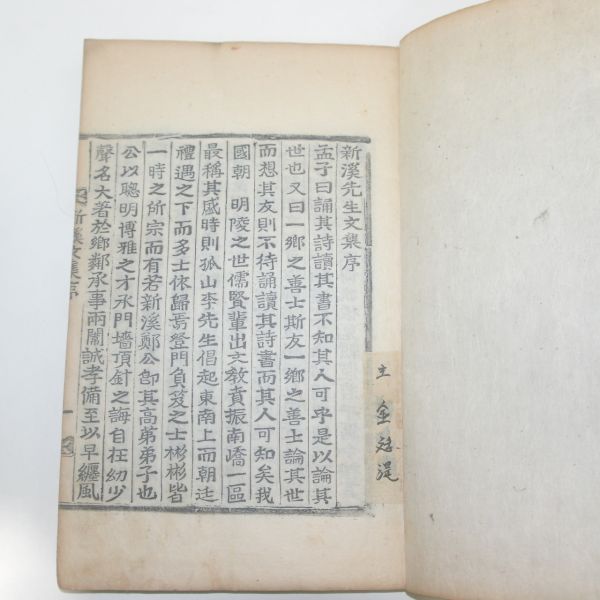 新溪先生文集序
孟子曰誦其詩讀其書不知其人可乎是以論其
世也又曰一鄉之善士斯友一鄉之善士論其世
而想其友則不待誦讀其詩書而其人可知矣我
國朝 明陵之世儒賢輩出文教賁振南嶠一區
最稱其盛時則孤山李先生倡起東南上而朝廷
禮遇之下而多士依歸焉登門負笈之士彬彬皆
一時之所宗而有若新溪鄭公卽其高弟弟子也
公以聰明博雅之才承門墻頂針之誨自在幼少
聲名大著於鄉鄰承事兩闈誠孝備至以早纏風
新溪文集序
一
土 金